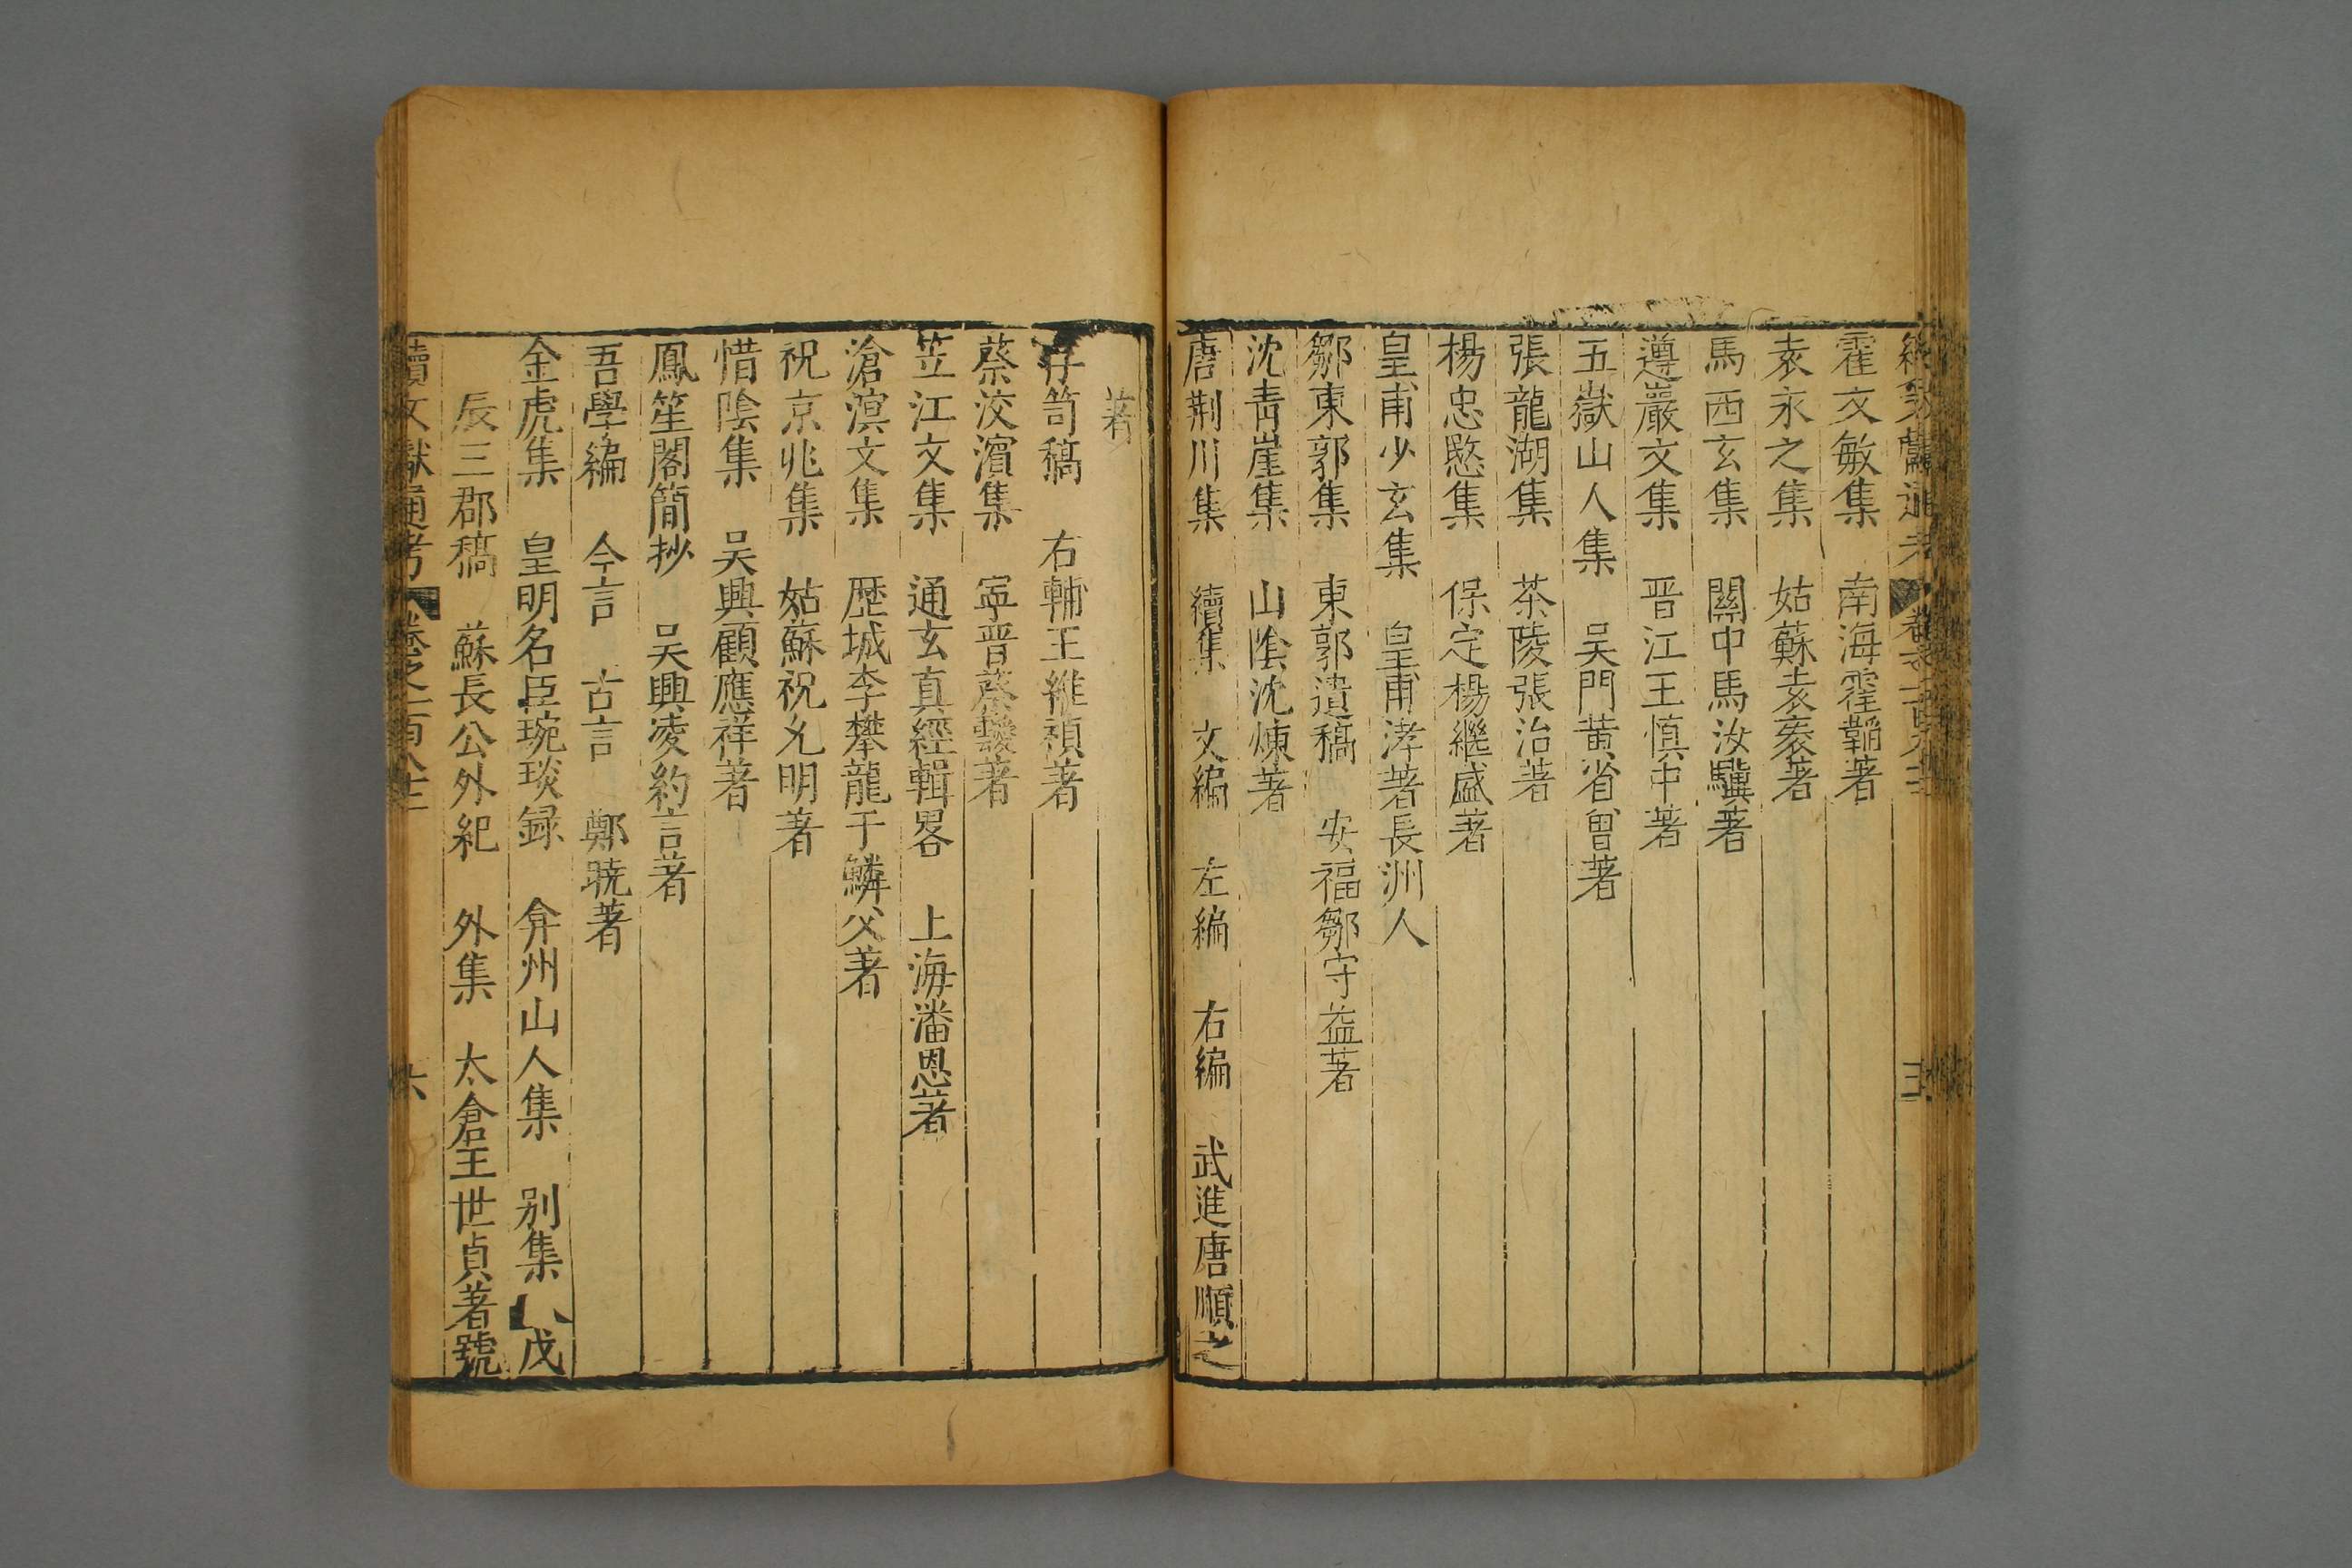 霍文敏集 南海霍韜著
袁永之集 姑蘇袁袠著
馬西玄集 關中馬汝驥著
遵巖文集 晋江王慎中著
五嶽山人集 吴門黄省曾著
張龍湖集 茶陵張治著
楊忠愍集 保定楊繼盛著
皇甫少玄集 皇甫涍著長洲人
鄒東郭集 東郭遺稿 安福鄒守益著
沈青崖集 山陰沈煉著
唐荆川集 續集 文編 左編 右編 武進唐順之
著
存笥稿 右輔王維禎著
蔡洨濱集 寧晋蔡靉著
笠江文集 通玄真經輯畧 上海潘恩著
滄溟文集 歷城李攀龍于鱗父著
祝京兆集 姑蘇祝允明著
惜陰集 吴興顧應祥著
鳳笙閣簡抄 吴興凌約言著
吾學編 今言 古言 鄭曉著
金虎集 皇明名臣琬琰録 弇州山人集 别集 戊
辰三郡稿 蘇長公外紀 外集 太倉王世貞著號
續文獻通考 卷之一百八十三 六